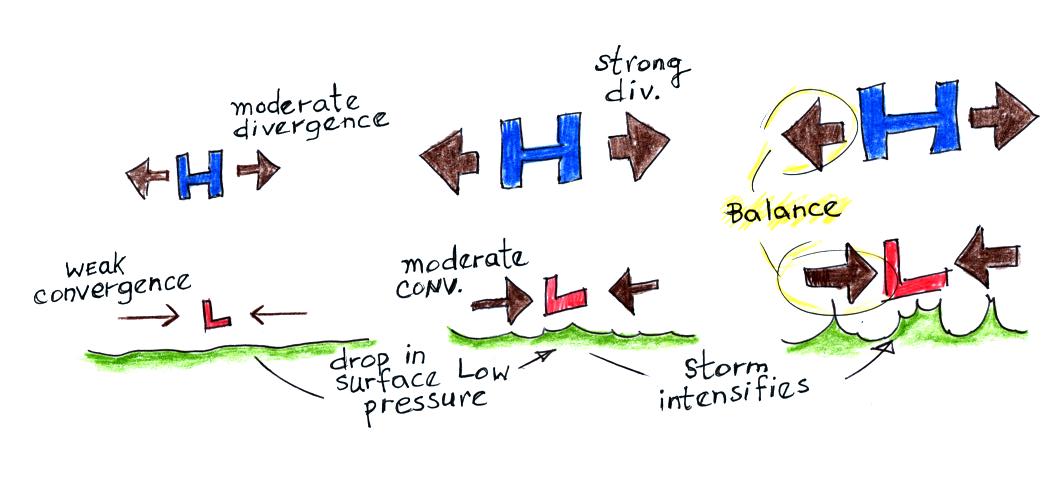 moderate
divergence
H
weak
convergence
L
strong
div.
H
moderate
conv.
L
drop in
surface Low
pressure
H
Balance
L
storm
intensifies